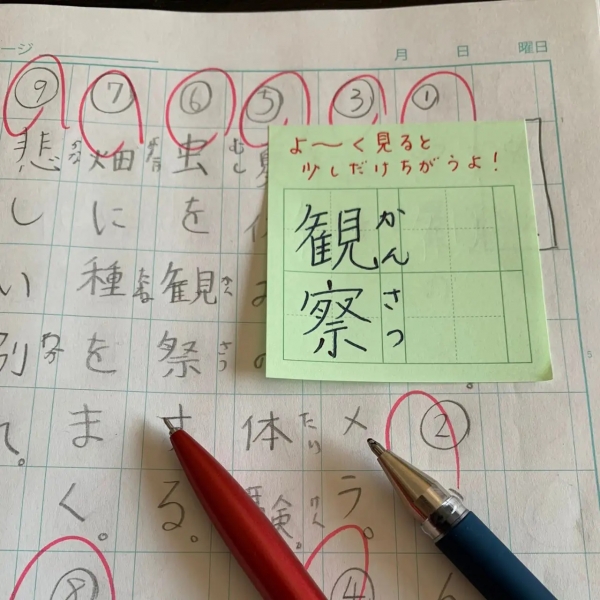 ージ
月 日 曜日
①
②
③
メラ。
④
⑤
体験。
たい
⑥
虫を観祭する。
むし
⑦
畑に種をまく。
たね
⑧
⑨
悲しい別
よ〜く見ると
少しだけちがうよ！
観察
かんさつ